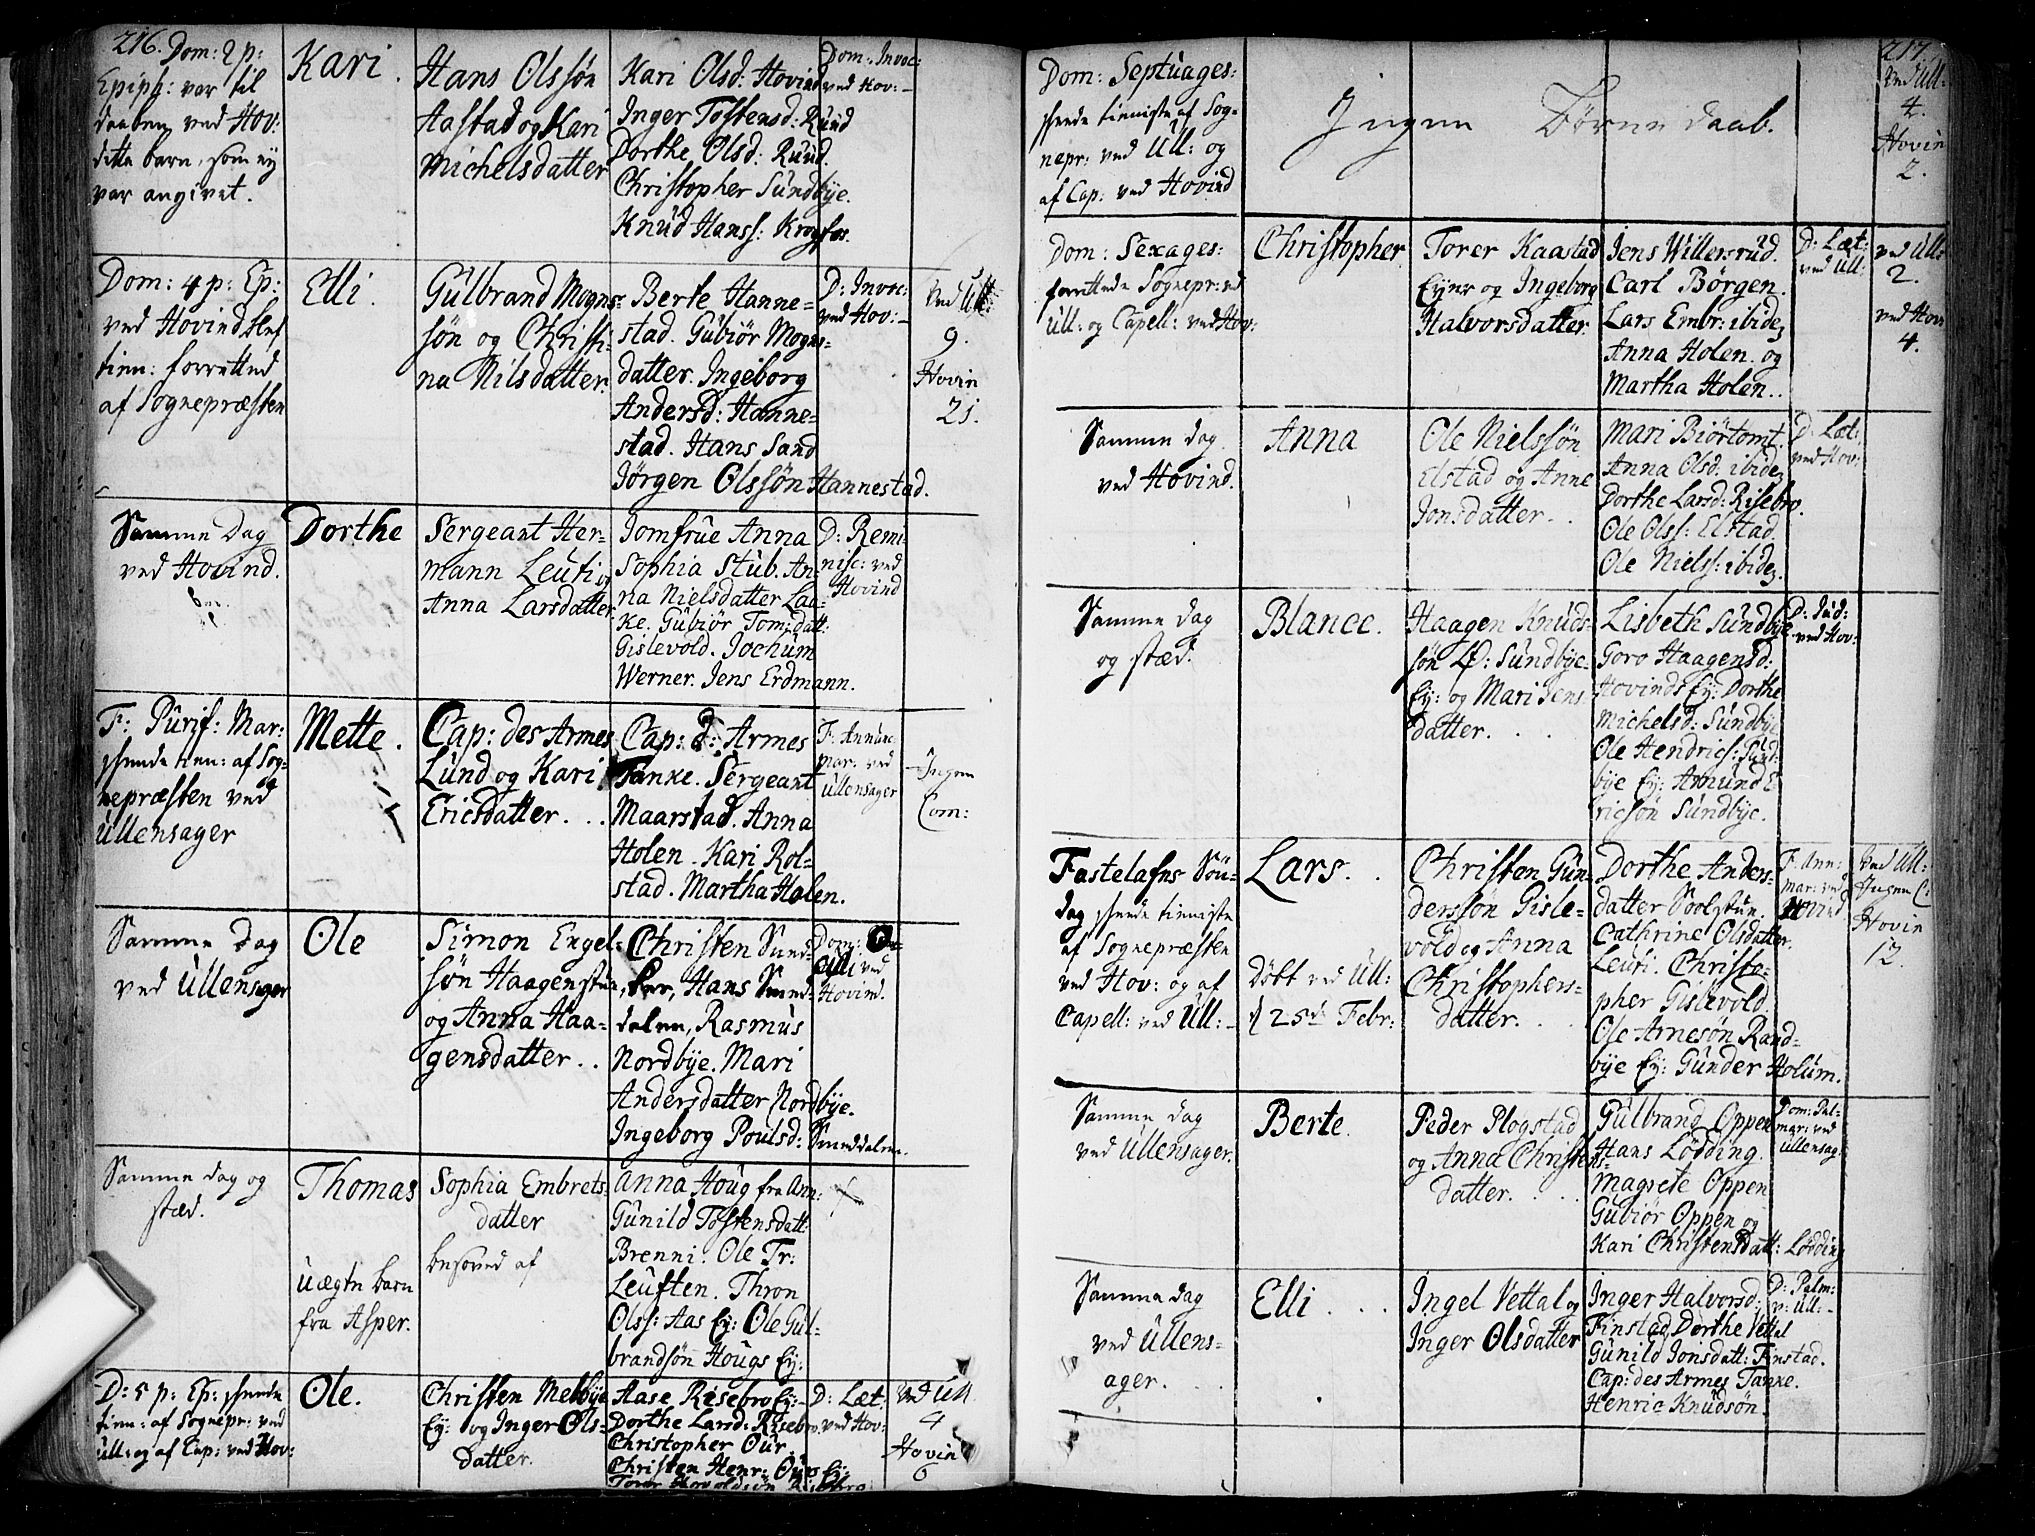 216. Dom: 2 p:
Epiph: var til
daaben ved Hov:
dette barn, som ey
var angivet.
Kari.
Hans Olssøn
Aastad og Kari
Michelsdatter
Kari Olsd: Hovind
Inger Tostensd: Rund
Dorthe Olsd: Ruud.
Christopher Sundbye.
Knud Hanss: Krogsfos.
Dom: Invoc:
ved Hov:
Dom: 4 p: Ep:
ved Hovind
tien: forretted
af Sognepræsten
Elli.
Gulbrand Mogns-
søn og Christi-
na Nilsdatter.
Berte Hanne-
stad. Gubiør Mogns-
datter. Ingeborg
Andersd: Hanne-
stad. Hans Sand
Jørgen Olssøn Hannestad.
D: Invoc:
ved Hov:
Ved Ull:
9.
Hovin
21.
Samme Dag
ved Hovind.
Dorthe
Sergeant Her-
mann Leuti og
Anna Larsdatter
Jomfrue Anna
Sophia Stub. An-
na Nielsdatter Laa-
ke. Gubiør Tom: datt:
Gislevold. Jochum
Werner. Jens Erdmann.
D: Remi-
nisc: ved
Hovind
F: Purif: Mar:
tien: af Sog-
nepræsten ved
Ullensager
Mette.
Cap: des Armes
Lund og Kari
Ericsdatter.
Cap: d: Armes
Tanke. Sergeant
Maarstad. Anna
Holen. Kari Rol-
stad. Martha Holen.
F: Annunc:
mar: ved
Ullensager
Ingen
Com:
Samme Dag
ved Ullensager
Ole
Simon Engel-
søn Haagenstue
og Anna Haa-
gensdatter..
Christen
Hans Smed-
dalen, Rasmus
Nordbye. Mari
Andersdatter Nordbye.
Ingeborg Poulsd: Smeddalen.
Dom:
ved
Hovind.
Samme dag og
stæd.
Thomas
Uægte barn
fra Asper.
Sophia Embrets-
datter
besoved af
Anna Houg fra Ann:
Gunild Tostensdatt:
Brenni. Ole Tr:
Leuften. Thron
Olss: Aas Ey: Ole Gul-
brandsøn Hougs Ey:
D: 5 p: Ep:
tien: af Sognepr: ved
Ull: og af Cap: ved Hov:
Ole.
Christen Melbye
Ey: og Inger Ols-
datter.
Aase Risebro Ey:
Dorthe Larsd: Risebro.
Christopher Our.
Christen Henr: Our Ey:
D: Læt:
ved Hov:
Ved Ull
4
Hovin
6
217.
Dom: Septuages:
tienniste af Sog-
nepr: ved Ull: og
af Cap: ved Hovind
Ingen Børne daab.
Ved Ull:
4.
Hovin
2.
Dom: Sexages:
forrettede Sognepr: ved
Ull: og Capell: ved Hov:
Christopher
Torer Kaastad
Eyer og Ingeborg
Halvorsdatter.
Jens Willersrud.
Carl Børgen.
Lars Embr: ibidem
Anna Holen. og
Martha Holen..
D: Læt:
ved Ull:
ved Ull:
2.
ved Hov:
4.
Samme dag
ved Hovind.
Anna
Ole Nielssøn
Elstad og Anne
Jonsdatter.
Mari Biørtomt.
Anna Olsd: ibidem
Dorthe Larsd: Risebro.
Ole Olss: Elstad.
Ole Nielss: ibidem
D: Læt:
ved Hov:
Samme dag
og stæd.
Blance.
Haagen Knuds-
søn Sundbye-
Ey: og Mari Jens
datter.
Lisbeth Sundbye
Goro Haagensd:
Hovinds Ey: Dorthe
Michelsd: Sundbye
Ole Hendrics: Sund-
bye Ey: Amund E-
ricsøn Sundbye.
D: Jud:
ved Hov:
Fastelafns Søn-
dag tienniste
af Sognepræsten
ved Hov: og af
Capell: ved Ull:
Lars.
Døbt ved Ull:
d 25de Febr:
Christen Gun-
derssøn Gisle-
vold og Anna
Christophers-
datter.
Dorthe Anders-
datter Soolstun.
Cathrine Olsdatter.
Leuti. Christo-
pher Gislevold.
Ole Arnesøn Rand-
bye Ey: Gunder Holum.
F: Ann:
mar: ved
Hovind
Ved Ull:
Ingen C:
Hovin
12.
Samme dag
ved Ullensager.
Berte.
Peder Plogstad
og Anna Christens-
datter.
Gulbrand Oppen
Hans Lødding.
Magrete Oppen
Gubiør Oppen og
Kari Christensdatt: Lødding
Dom: Pal-
mar: ved
Ullensag:
Samme dag
ved Ullens-
ager.
Elli
Ingel Vettal og
Inger Olsdatter
Inger Halvorsd:
Finstad Dorthe Vettal
Gunild Jonsdatt: Finstad.
Cap: des Armes Tanke.
Henric Knudsøn.
D: Palm:
v: Ull: